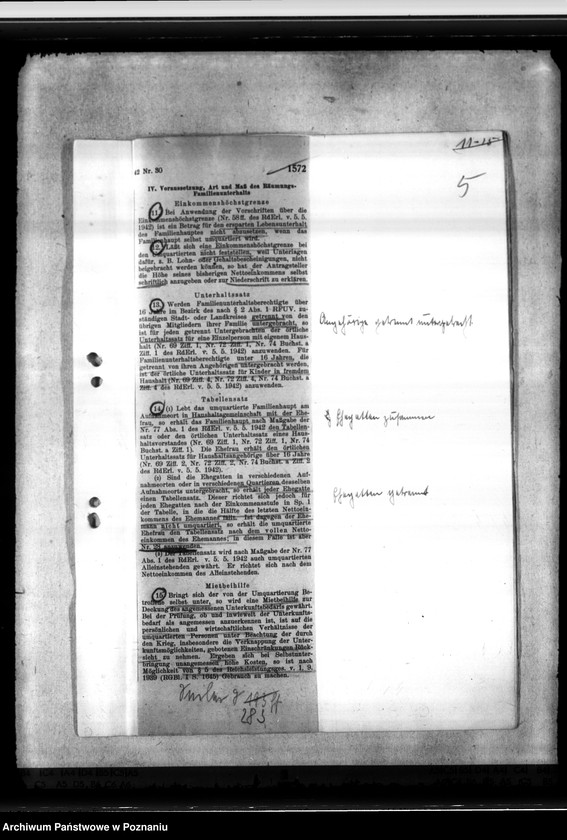 11-15
5
42 Nr. 30
1572
IV. Voraussetzung, Art und Maß des Räumungs-
Familienunterhalts
Einkommenshöchstgrenze
11. Bei Anwendung der Vorschriften über die
Einkommenshöchstgrenze (Nr. 58 ff. des RdErl. v. 5. 5.
1942) ist ein Betrag für den ersparten Lebensunterhalt
des Familienhauptes nicht abzusetzen, wenn das
Familienhaupt selbst umquartiert wird.
12. Läßt sich eine Einkommenshöchstgrenze bei
den Umquartierten nicht feststellen, weil Unterlagen
dafür, z. B. Lohn- oder Gehaltsbescheinigungen, nicht
beigebracht werden können, so hat der Antragsteller
die Höhe seines bisherigen Nettoeinkommens selbst
schriftlich anzugeben oder zur Niederschrift zu erklären.
Unterhaltssatz
13. Werden Familienunterhaltsberechtigte über
16 Jahre im Bezirk des nach § 2 Abs. 1 RFUV. zu-
ständigen Stadt- oder Landkreises getrennt von den
übrigen Mitgliedern ihrer Familie untergebracht, so
ist für jeden getrennt Untergebrachten der örtliche
Unterhaltssatz für eine Einzelperson mit eigenem Haus-
halt (Nr. 69 Ziff. 1, Nr. 72 Ziff. 1, Nr. 74 Buchst. a
Ziff. 1 des RdErl. v. 5. 5. 1942) anzuwenden. Für
Familienunterhaltsberechtigte unter 16 Jahren, die
getrennt von ihren Angehörigen untergebracht werden,
ist der örtliche Unterhaltssatz für Kinder in fremdem
Haushalt (Nr. 69 Ziff. 4, Nr. 72 Ziff. 4, Nr. 74 Buchst. a
Ziff. 4 des RdErl. v. 5. 5. 1942) anzuwenden.
Angehörige getrennt untergebracht
Tabellensatz
14. (1) Lebt das umquartierte Familienhaupt am
Aufnahmeort in Haushaltsgemeinschaft mit der Ehe-
frau, so erhält das Familienhaupt nach Maßgabe der
Nr. 77 Abs. 1 des RdErl. v. 5. 5. 1942 den Tabellen-
satz oder den örtlichen Unterhaltssatz eines Haus-
haltsvorstandes (Nr. 69 Ziff. 1, Nr. 72 Ziff. 1, Nr. 74
Buchst. a Ziff. 1). Die Ehefrau erhält den örtlichen
Unterhaltssatz für Haushaltsangehörige über 16 Jahre
(Nr. 69 Ziff. 2, Nr. 72 Ziff. 2, Nr. 74 Buchst. a Ziff. 2
des RdErl. v. 5. 5. 1942).
Ehegatten zusammen
(2) Sind die Ehegatten in verschiedenen Auf-
nahmeorten oder in verschiedenen Quartieren desselben
Aufnahmeorts untergebracht, so erhält jeder Ehegatte
einen Tabellensatz. Dieser richtet sich jedoch für
jeden Ehegatten nach der Einkommensstufe in Sp. 1
der Tabelle, in die die Hälfte des letzten Nettoein-
kommens des Ehemannes fällt. Ist dagegen der Ehe-
mann nicht umquartiert, so erhält die umquartierte
Ehefrau den Tabellensatz nach dem vollen Netto-
einkommen des Ehemannes; in diesem Falle ist aber
Nr. 29 anzuwenden.
Ehegatten getrennt
(3) Der Tabellensatz wird nach Maßgabe der Nr. 77
Abs. 1 des RdErl. v. 5. 5. 1942 auch umquartierten
Alleinstehenden gewährt. Er richtet sich nach dem
Nettoeinkommen des Alleinstehenden.
Mietbeihilfe
15. Bringt sich der von der Umquartierung Be-
troffene selbst unter, so wird eine Mietbeihilfe zur
Deckung des angemessenen Unterkunftsbedarfs gewährt.
Bei der Prüfung, ob und inwieweit der Unterkunfts-
bedarf als angemessen anzuerkennen ist, ist auf die
persönlichen und wirtschaftlichen Verhältnisse der
umquartierten Personen unter Beachtung der durch
den Krieg, insbesondere die Verknappung der Unter-
kunftsmöglichkeiten, gebotenen Einschränkungen Rück-
sicht zu nehmen. Ergeben sich bei Selbstunter-
bringung unangemessen hohe Kosten, so ist nach
Möglichkeit von § 5 des Reichsleistungsges. v. 1. 9.
1939 (RGBl. I S. 1645) Gebrauch zu machen.
283
Archiwum Państwowe w Poznaniu